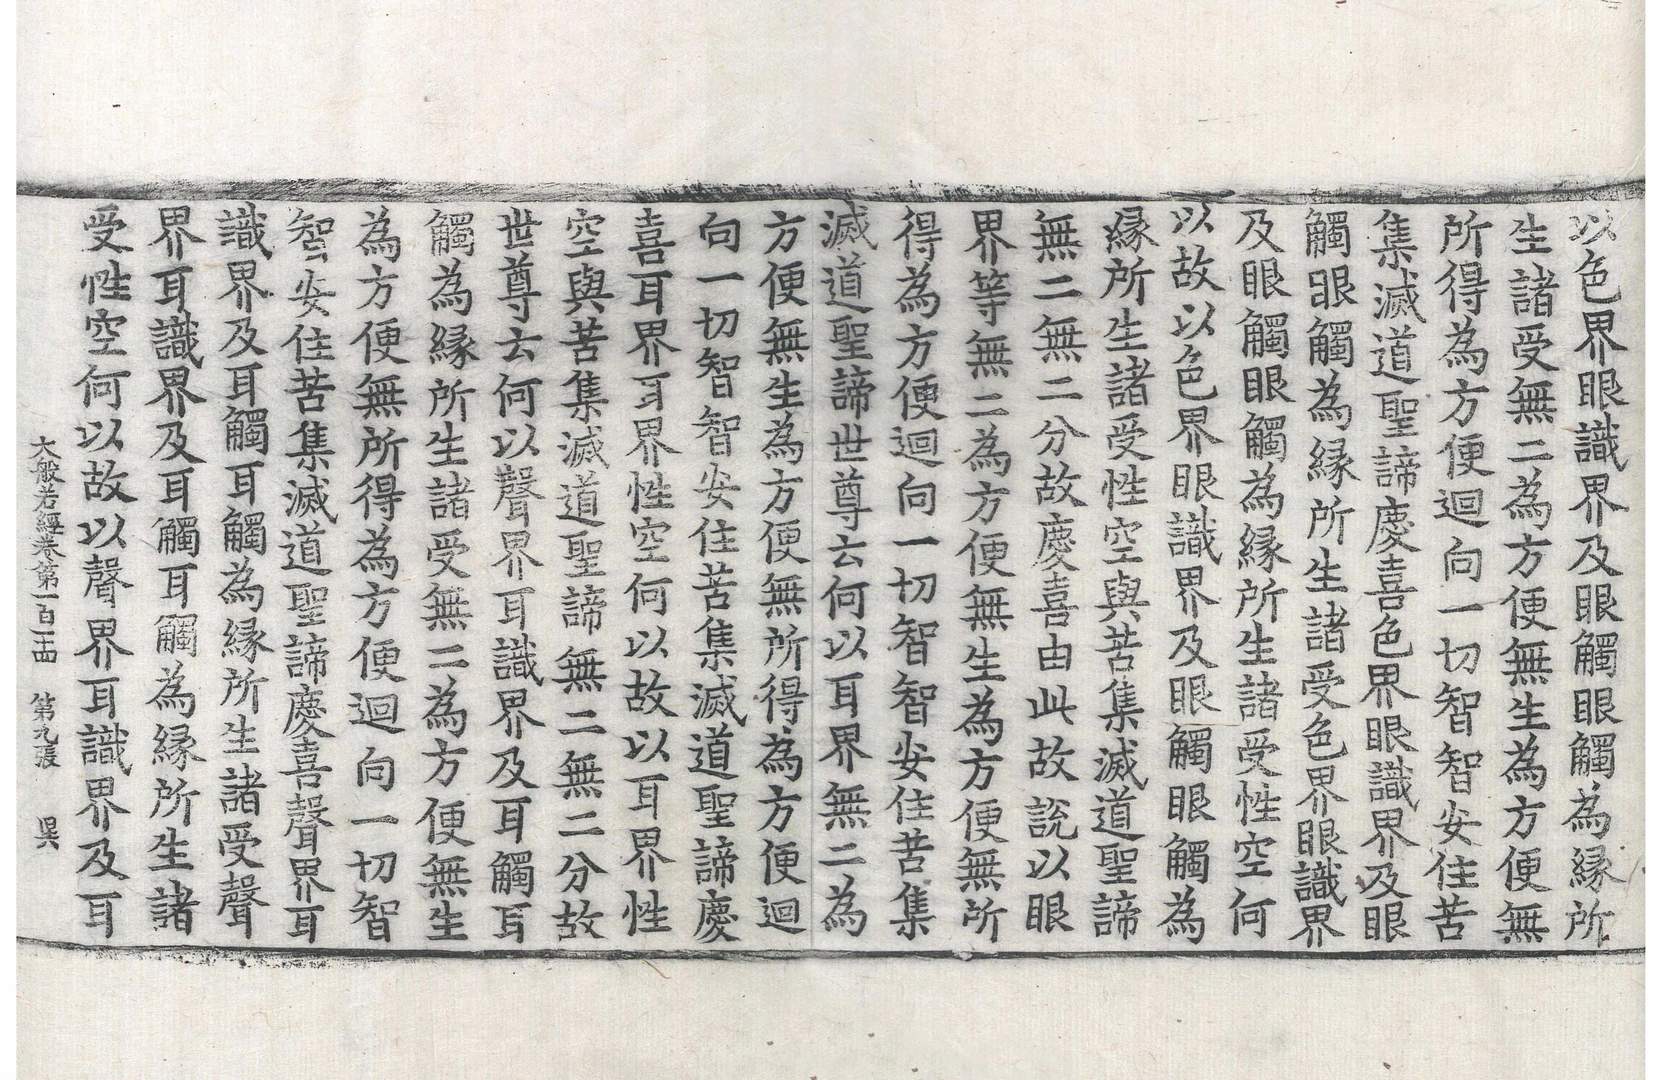 以色界眼識界及眼觸眼觸為縁所
生諸受無二為方便無生為方便無
所得為方便迴向一切智智安住苦
集滅道聖諦慶喜色界眼識界及眼
觸眼觸為縁所生諸受色界眼識界
及眼觸眼觸為縁所生諸受性空何
以故以色界眼識界及眼觸眼觸為
縁所生諸受性空與苦集滅道聖諦
無二無二分故慶喜由此故說以眼
界等無二為方便無生為方便無所
得為方便迴向一切智智安住苦集
滅道聖諦世尊云何以耳界無二為
方便無生為方便無所得為方便迴
向一切智智安住苦集滅道聖諦慶
喜耳界耳界性空何以故以耳界性
空與苦集滅道聖諦無二無二分故
世尊云何以聲界耳識界及耳觸耳
觸為縁所生諸受無二為方便無生
為方便無所得為方便迴向一切智
智安住苦集滅道聖諦慶喜聲界耳
識界及耳觸耳觸為縁所生諸受聲
界耳識界及耳觸耳觸為縁所生諸
受性空何以故以聲界耳識界及耳
大般若經卷第一百二十四 第九張 昃